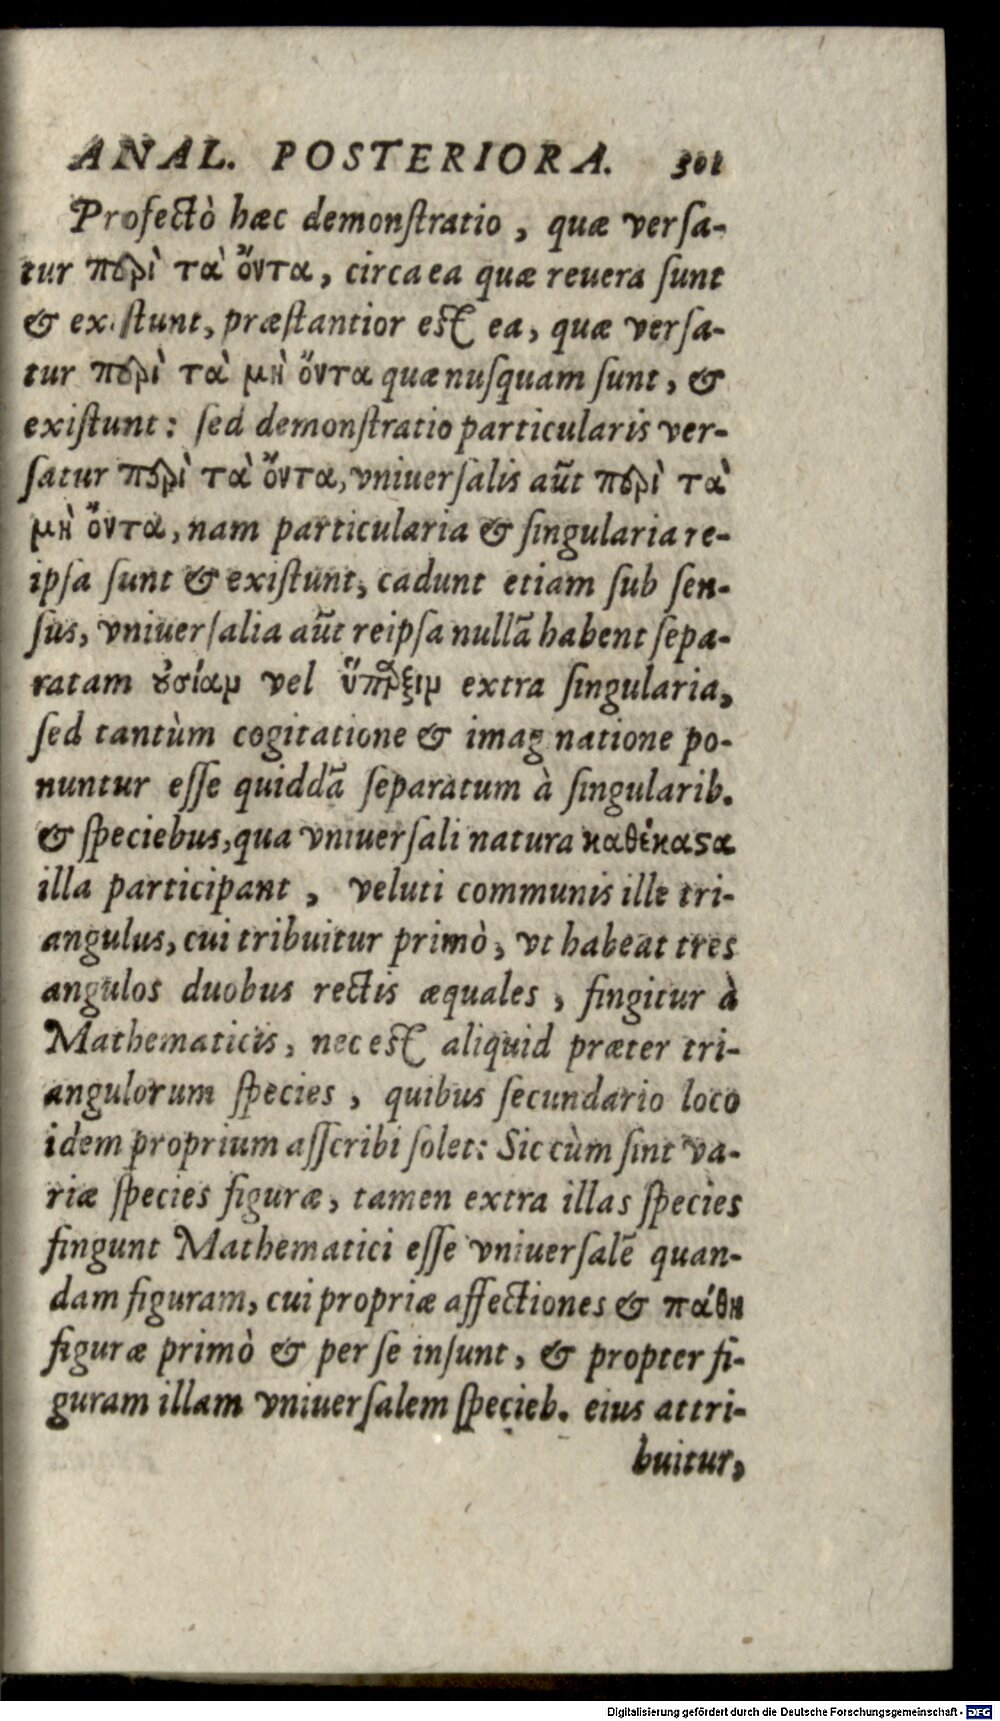 ANAL. POSTERIORA. 301
Profectò hæc demonſtratio, quæ verſa-
tur περὶ τὰ ὄντα, circa ea quæ reuera ſunt
& exiſtunt, præſtantior eſt ea, quæ verſa-
tur περὶ τὰ μὴ ὄντα quæ nuſquam ſunt, &
exiſtunt: ſed demonſtratio particularis ver-
ſatur περὶ τὰ ὄντα, vniuerſalis aūt περὶ τὰ
μὴ ὄντα, nam particularia & ſingularia re-
ipſa ſunt & exiſtunt, cadunt etiam ſub ſen-
ſus, vniuerſalia aūt reipſa nullā habent ſepa-
ratam ȣ̓σίαμ vel ὕπαρξιμ extra ſingularia,
ſed tantùm cogitatione & imaginatione po-
nuntur eſſe quiddā ſeparatum à ſingularib.
& ſpeciebus, qua vniuerſali natura καθέκαϛα
illa participant, veluti communis ille tri-
angulus, cui tribuitur primò, vt habeat tres
angulos duobus rectis æquales, fingitur à
Mathematicis, nec eſt aliquid præter tri-
angulorum ſpecies, quibus ſecundario loco
idem proprium aſſcribi ſolet: Sic cùm ſint va-
riæ ſpecies figuræ, tamen extra illas ſpecies
fingunt Mathematici eſſe vniuerſalē quan-
dam figuram, cui propriæ affectiones & πάθη
figuræ primò & per ſe inſunt, & propter fi-
guram illam vniuerſalem ſpecieb. eius attri-
buitur,
Digitalisierung gefördert durch die Deutsche Forschungsgemeinschaft - DFG